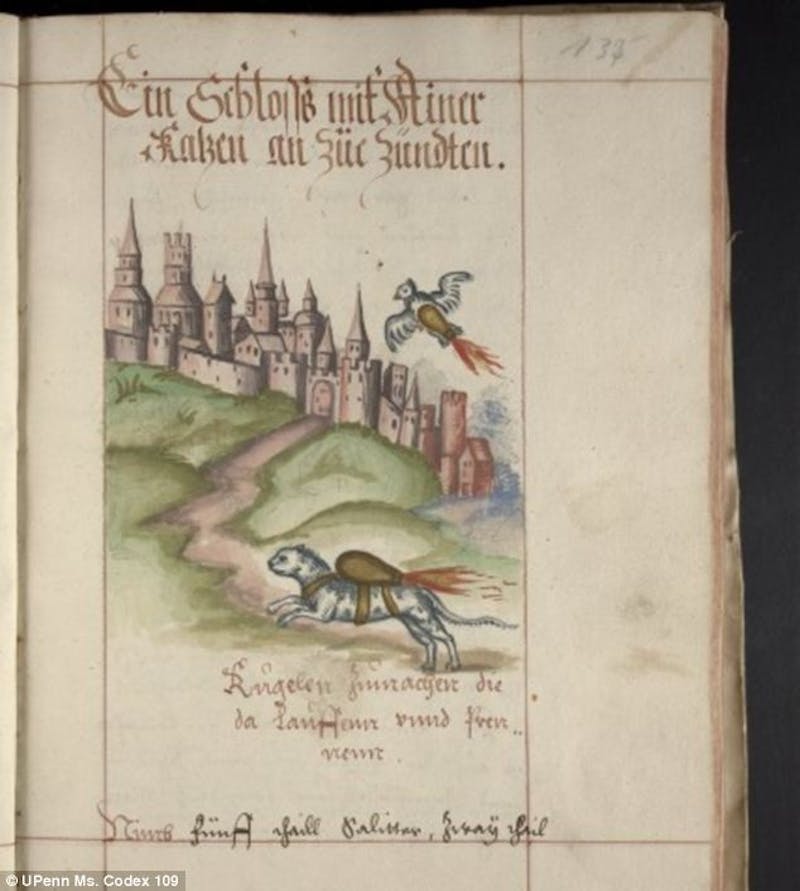 137
Ein Schloss mit Ainer
Katzen an Züe Zündten.
Kugelen Zumachen die
da Lauffenn vnnd Pren„
nenn.
Nimb fünff thaill Salitter, Zwaÿ thail
© UPenn Ms. Codex 109